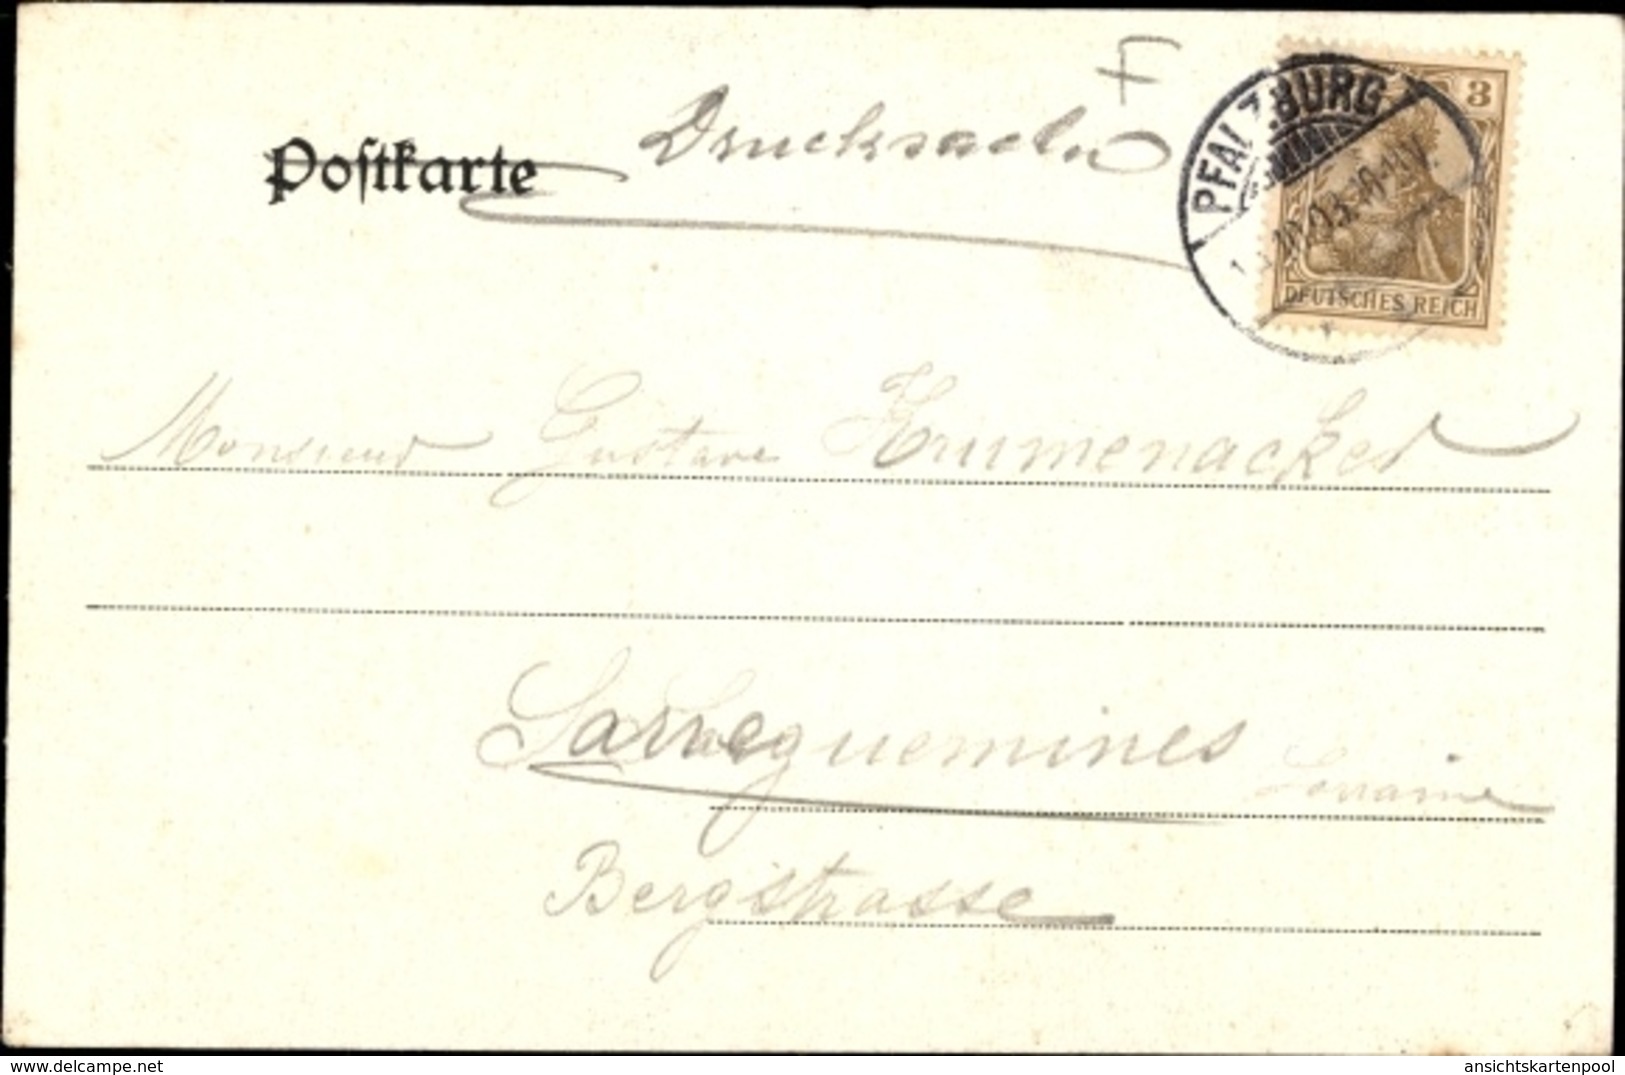 F
Drucksache
Postkarte
PFALZBURG
3
DEUTSCHES REICH
Monsieur Gustave Krumenacker
Sarreguemines Lorraine
Bergstrasse
www.delcampe.net
ansichtskartenpool